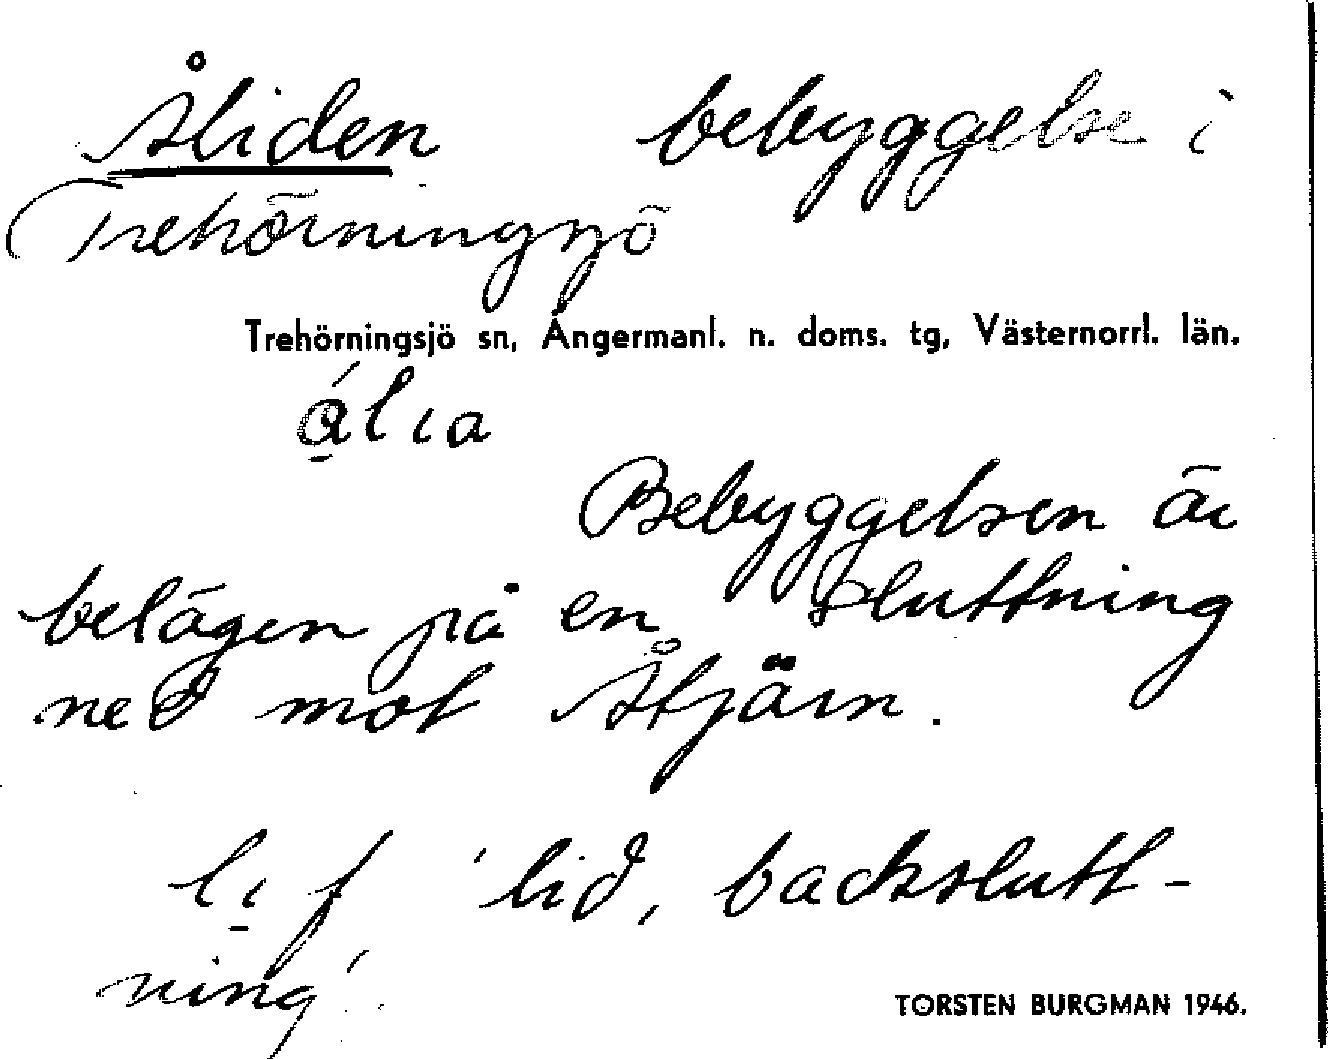 Åliden bebyggelse i
Trehörningsjö
Trehörningsjö sn, Ångermanl. n. doms. tg, Västernorrl. län.
ǻ̱lia
Bebyggelsen är
belägen på en sluttning
ned mot Åtjärn.
li̱ f 'lid, backslutt-
ning'.
TORSTEN BURGMAN 1946.